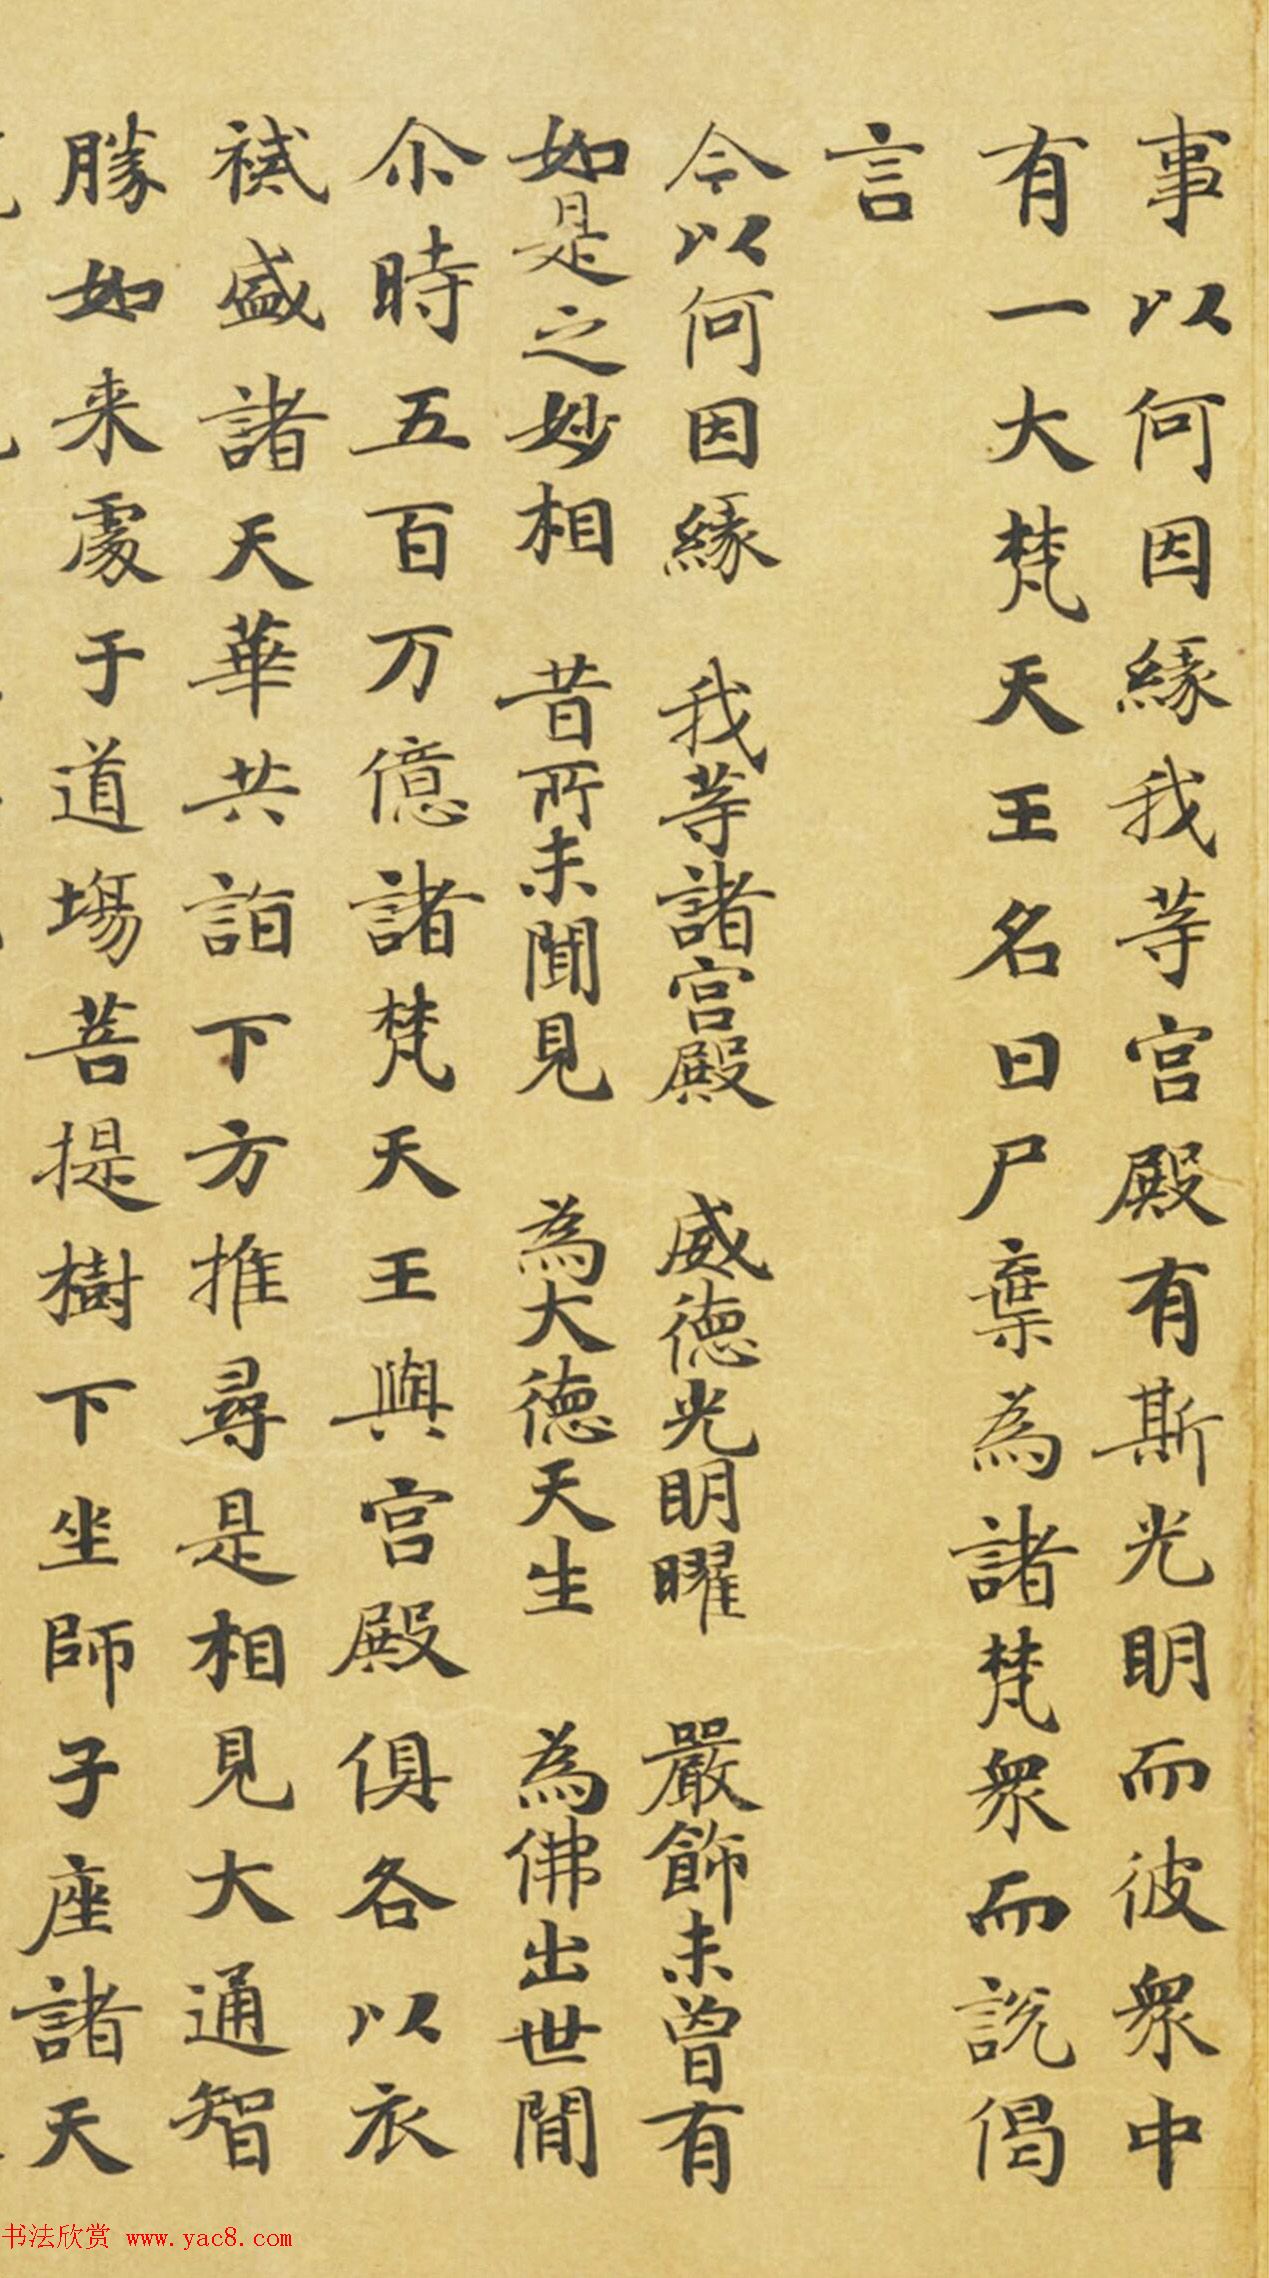 事以何因緣我等宮殿有斯光明而彼眾中
有一大梵天王名曰尸棄為諸梵眾而說偈
言
今以何因緣 我等諸宮殿 威德光明曜 嚴飾未曾有
如是之妙相 昔所未聞見 為大德天生 為佛出世間
尒時五百万億諸梵天王與宮殿俱各以衣
裓盛諸天華共詣下方推尋是相見大通智
勝如来處于道場菩提樹下坐師子座諸天
书法欣赏 www.yac8.com